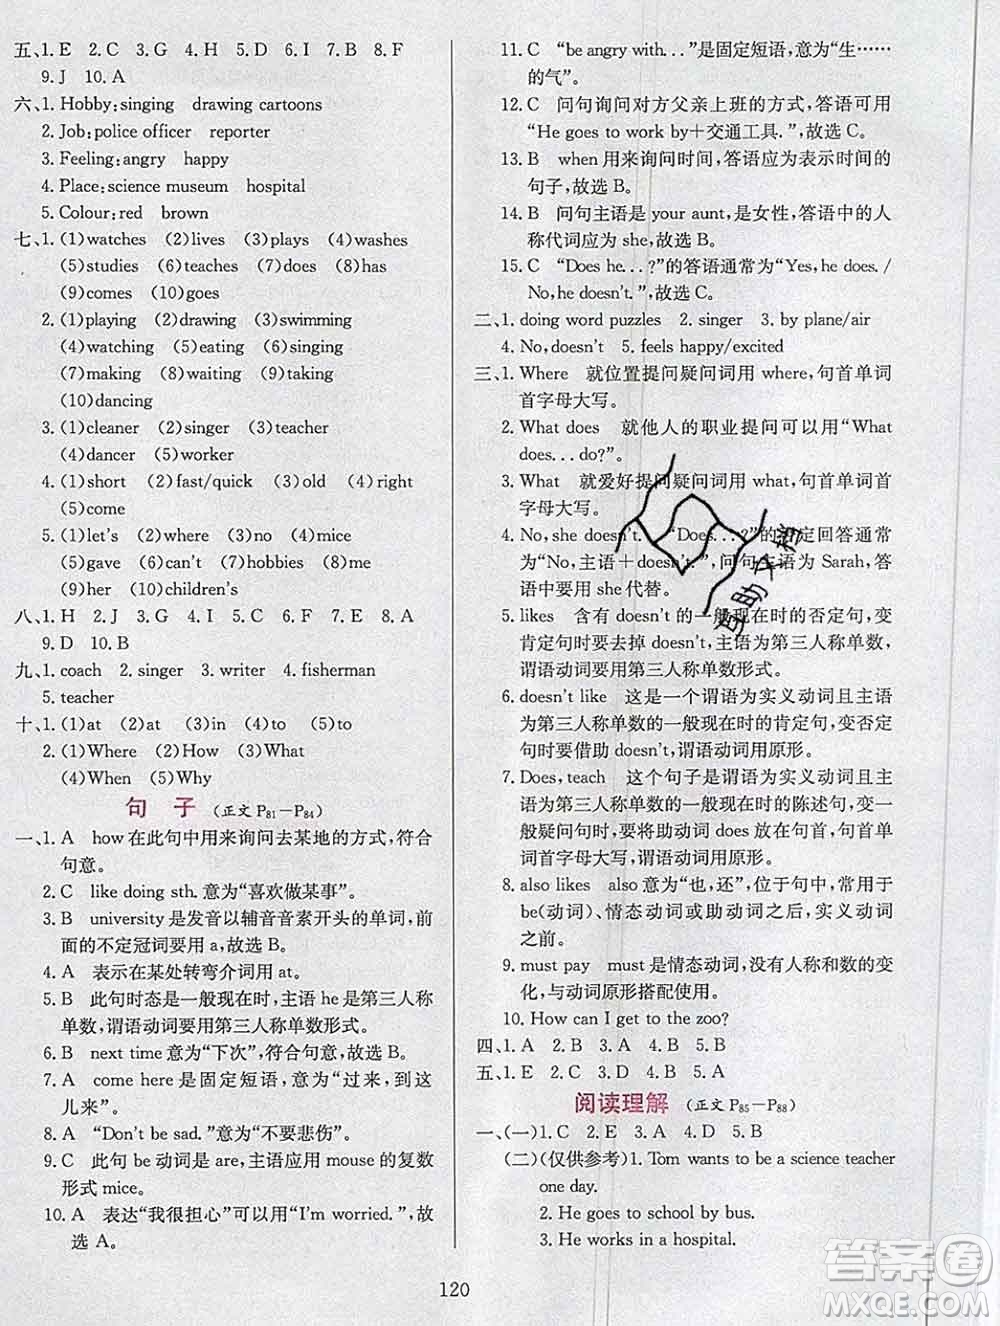 五、1. E 2. C 3. G 4. H 5. D 6. I 7. B 8. F
9. J 10. A
六、1. Hobby:singing drawing cartoons
2. Job:police officer reporter
3. Feeling:angry happy
4. Place:science museum hospital
5. Colour:red brown
七、1. (1)watches (2)lives (3)plays (4)washes
(5)studies (6)teaches (7)does (8)has
(9)comes (10)goes
2. (1)playing (2)drawing (3)swimming
(4)watching (5)eating (6)singing
(7)making (8)waiting (9)taking
(10)dancing
3. (1)cleaner (2)singer (3)teacher
(4)dancer (5)worker
4. (1)short (2)fast/quick (3)old (4)right
(5)come
5. (1)let's (2)doesn't (3)that's (4)mice
(5)gave (6)can't (7)hobbies (8)me
(9)her (10)children's
八、1. H 2. J 3. F 4. I 5. G 6. C 7. E 8. A
9. D 10. B
九、1. coach 2. singer 3. writer 4. fisherman
5. teacher
十、1. (1)at (2)at (3)in (4)to (5)to
2. (1)Where (2)How (3)What
(4)When (5)Why
句 子 (正文 P81—P84)
一、1. A how在此句中用来询问去某地的方式,符合
句意。
2. C like doing sth. 意为“喜欢做某事”。
3. B university是发音以辅音音素开头的单词,前
面的不定冠词要用a,故选B。
4. A 表示在某处转弯介词用at。
5. B 此句时态是一般现在时,主语he是第三人称
单数,谓语动词要用第三人称单数形式。
6. B next time意为“下次”,符合句意,故选B。
7. A come here是固定短语,意为“过来,到这
儿来”。
8. A “Don't be sad.”意为“不要悲伤”。
9. C 此句be动词是are,主语应用mouse的复数
形式mice。
10. A 表达“我很担心”可以用“I'm worried.”,故
选A。
11. C “be angry with...”是固定短语,意为“生……
的气”。
12. C 问句询问对方父亲上班的方式,答语可用
“He goes to work by+交通工具.”,故选C。
13. B when用来询问时间,答语应为表示时间的
句子,故选B。
14. B 问句主语是your aunt,是女性,答语中的人
称代词应为she,故选B。
15. C “Does he...?”的答语通常为“Yes,he does./
No,he doesn't.”,故选C。
二、1. doing word puzzles 2. singer 3. by plane/air
4. No,doesn't 5. feels happy/excited
三、1. Where 就位置提问疑问词用where,句首单词
首字母大写。
2. What does 就他人的职业提问可以用“What
does...do?”。
3. What 就爱好提问疑问词用what,句首单词首
字母大写。
4. No,she doesn't. “Does...?”的否定回答通常
为“No,主语+doesn't.”,问句主语为Sarah,答
语中要用she代替。
5. likes 含有doesn't的一般现在时的否定句,变
肯定句时要去掉doesn't,主语为第三人称单数,
谓语动词要用第三人称单数形式。
6. doesn't like 这是一个谓语为实义动词且主语
为第三人称单数的一般现在时的肯定句,变否定
句时要借助doesn't,谓语动词用原形。
7. Does,teach 这个句子是谓语为实义动词且主语
为第三人称单数的一般现在时的陈述句,变
一般疑问句时,要将助动词does放在句首,句首单
词首字母大写,谓语动词用原形。
8. also likes also意为“也,还”,位于句中,常用于
be(动词)、情态动词或助动词之后,实义动词
之前。
9. must pay must是情态动词,没有人称和数的变
化,与动词原形搭配使用。
10. How can I get to the zoo?
四、1. A 2. B 3. A 4. B 5. B
五、1. E 2. C 3. D 4. B 5. A
阅读理解 (正文 P85—P88)
一、(一)1. C 2. E 3. A 4. D 5. B
(二)(仅供参考)1. Tom wants to be a science teacher
one day.
2. He goes to school by bus.
3. He works in a hospital.
120
互助文档
答案圈
MXQE.COM